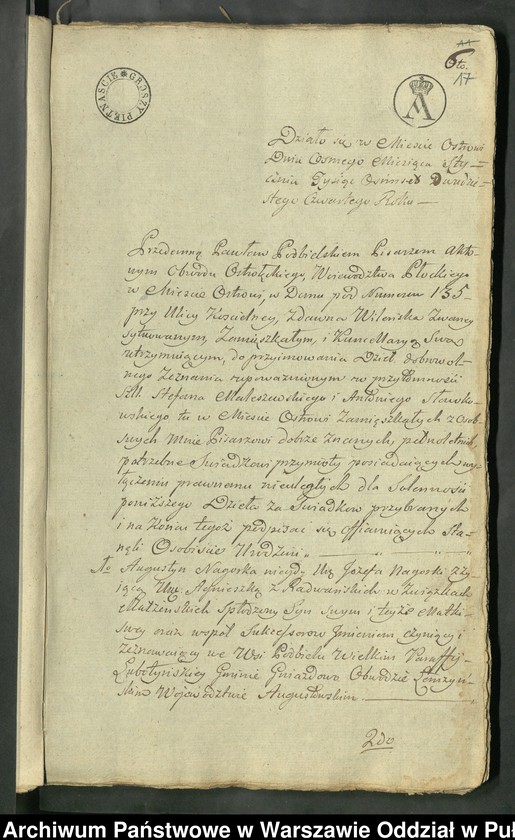 GROSZY PIĘTNAŚCIE
A
17
Działo się w Mieście Ostrowi
Dnia Osmego Miesiąca Sty-
cznia Tysiąc Ośmset Dwudzie-
stego Czwartego Roku —
Przedemną Pawłem Podbielskiem Pisarzem Akto-
wym Obwodu Ostrołęckiego, Woiewodztwa Płockiego
w Mieście Ostrowi, w Domu pod Numerem 135
przy Ulicy Kościelney, zdawna Wileńska zwaney
sytuowanym, Zamieszkałym, i Kancellaryą Swą
utrzymuiącym, do przyimowania Dzieł dobrowol-
nego Zeznania upoważnionym w przytomności
Szll. Stefana Maleszewskiego i Antoniego Sławko-
wskiego tu w Mieście Ostrowi Zamięszkałych z Osób
swych Mnie Pisarzowi dobrze znanych, pełnoletnich
potrzebne Świadkowi przymioty posiadaiących wy-
łączeniu prawnemu nieuległych dla Solenności
poniższego Dzieła za Świadków przybranych
i na Końcu tegoż podpisać się ofiaruiących Sta-
nęli Osobiście Urodzeni
1o Augustyn Nagorka niegdy Ur. Jozefa Nagorki z ży-
iącą Ur. Agnieszką z Radwańskich w Związkach
Małżeńskich Spłodzony Syn Swym i teyże Matki
Swey oraz wspól Sukcessorow Jmieniem czyniący i
zeznawaiący we Wsi Podbielu Wielkim Paraffij
Lubotyńskiey Gminie Gniazdowo Obwodzie Łomżyń-
skim Woiewództwie Augustowskim
2do
Archiwum Państwowe w Warszawie Oddział w Puł